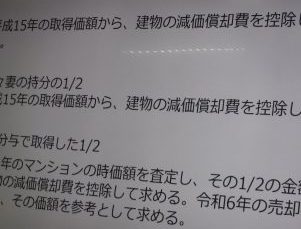 平成15年の取得価額から、建物の減価償却費を控除し
。
妻の持分の1/2
成15年の取得価額から、建物の減価償却費を控除し
分与で取得した1/2
年のマンションの時価額を査定し、その1/2の金額
物の減価償却費を控除して求める。令和6年の売却
、その価額を参考として求める。